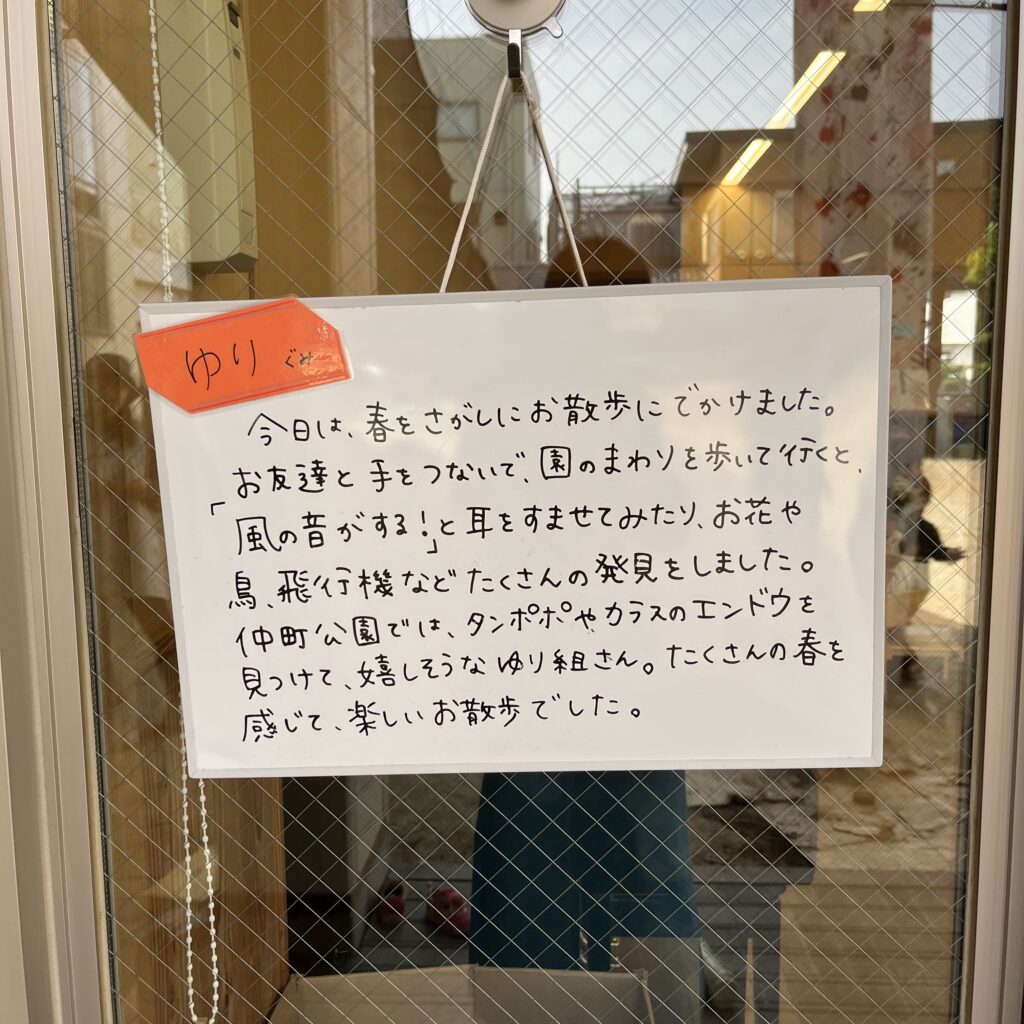 ゆりぐみ
今日は、春をさがしにお散歩にでかけました。
お友達と手をつないで、園のまわりを歩いて行くと、
「風の音がする!」と耳をすませてみたり、お花や
鳥、飛行機などたくさんの発見をしました。
仲町公園では、タンポポやカラスのエンドウを
見つけて、嬉しそうなゆり組さん。たくさんの春を
感じて、楽しいお散歩でした。